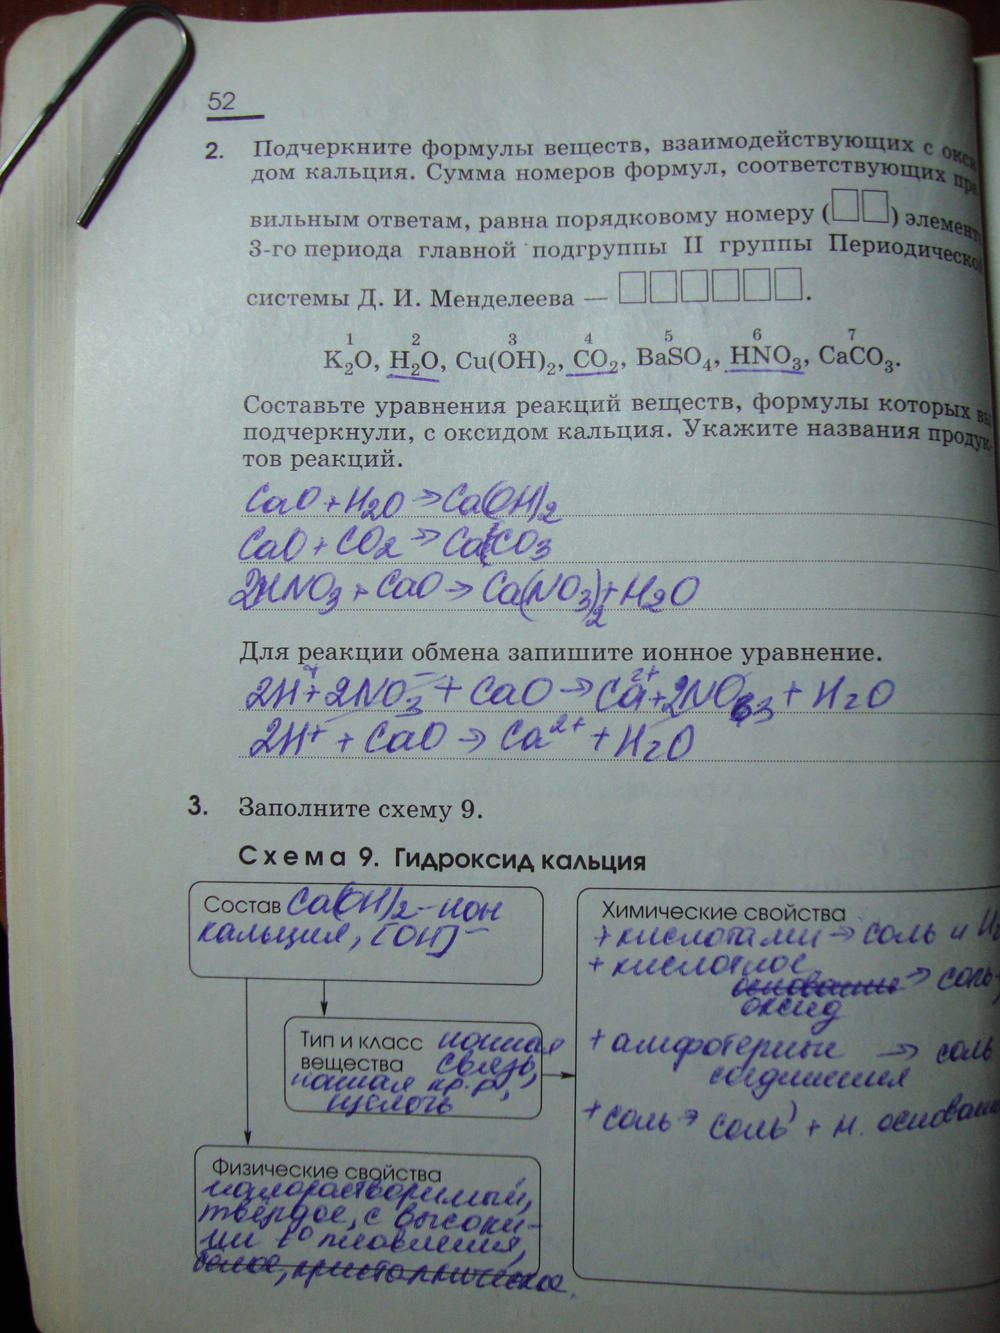 52
2. Подчеркните формулы веществ, взаимодействующих с окси
дом кальция. Сумма номеров формул, соответствующих пра
вильным ответам, равна порядковому номеру (□□) элемент
3-го периода главной подгруппы II группы Периодическо
системы Д. И. Менделеева — □□□□□□.
1 2 3 4 5 6 7
K₂O, H₂O, Cu(OH)₂, CO₂, BaSO₄, HNO₃, CaCO₃.
Составьте уравнения реакций веществ, формулы которых вы
подчеркнули, с оксидом кальция. Укажите названия продук-
тов реакций.
CaO + H₂O → Ca(OH)₂
CaO + CO₂ → CaCO₃
2HNO₃ + CaO → Ca(NO₃)₂ + H₂O
Для реакции обмена запишите ионное уравнение.
2H⁺ + 2NO₃⁻ + CaO → Ca²⁺ + 2NO₃ + H₂O
2H⁺ + CaO → Ca²⁺ + H₂O
3. Заполните схему 9.
Схема 9. Гидроксид кальция
Состав Ca(OH)₂ – ион
кальция, [OH]⁻
Тип и класс ионная
вещества связь,
ионная кр. р.,
щелочь
Физические свойства
малорастворимый,
твёрдое, с высоки-
ми t° плавления,
белое, кристаллическое.
Химические свойства
+ кислотами → соль и H₂
+ кислотное
основание → соль
оксид
+ амфотерные → соль
соединения
+ соль → соль) + н. основание